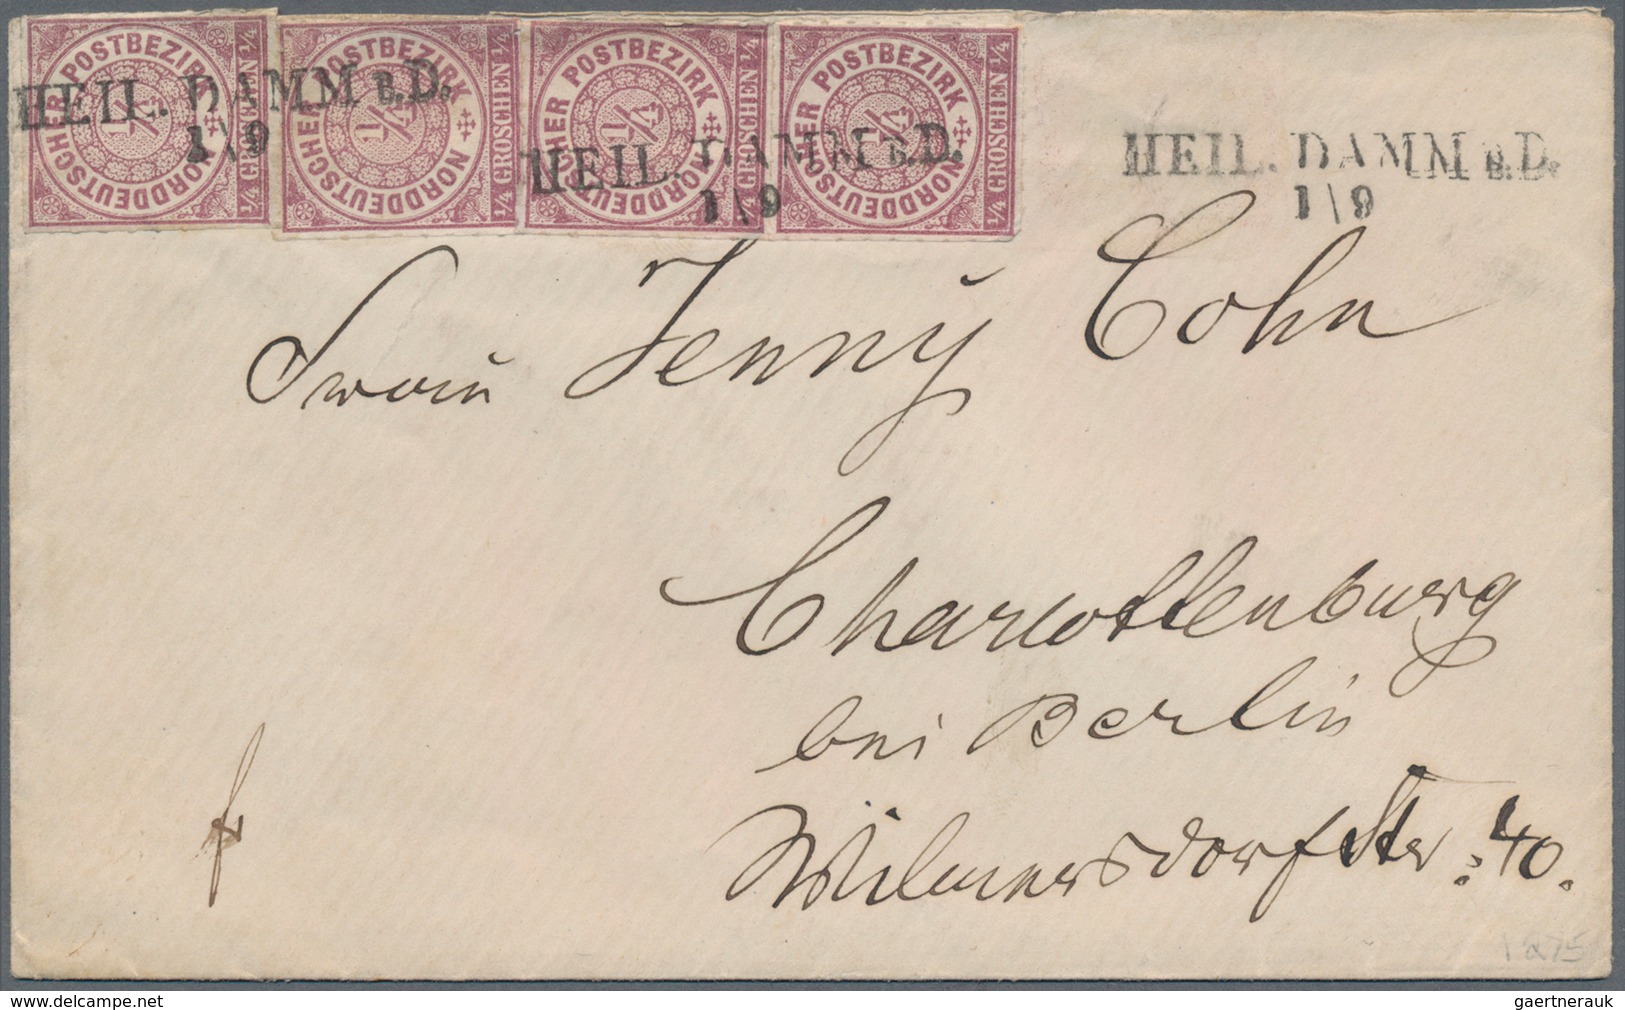 NORDDEUTSCHER POSTBEZIRK 1/4 1/4 GROSCHEN 1/4
NORDDEUTSCHER POSTBEZIRK 1/4 1/4 GROSCHEN 1/4
NORDDEUTSCHER POSTBEZIRK 1/4 1/4 GROSCHEN 1/4
NORDDEUTSCHER POSTBEZIRK 1/4 1/4 GROSCHEN 1/4
HEIL. DAMM B.D.
1\9
HEIL. DAMM B.D.
1\9
HEIL. DAMM B.D.
1\9
Frau Jenny Cohn
Charlottenburg
bei Berlin
Wilmersdorfster: 40.
gaertnerauk